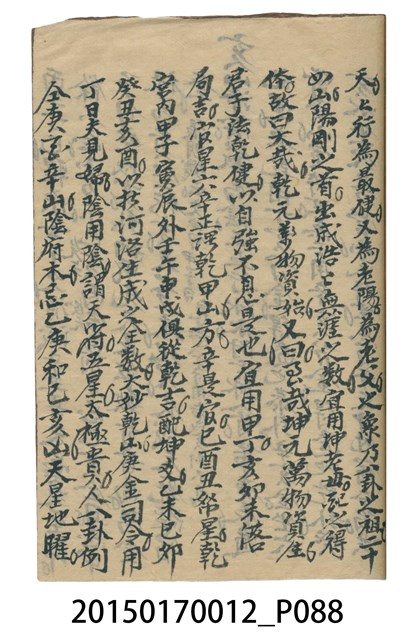 天之行為最健又為老陽為老父之象乃八卦之祖二十
四山陽剛之首出成浩之無涯之數宜用坤老配之得
偹故曰大哉乾元萬物資始又曰至哉坤元萬物資生
君子法乾健以自強不息是也宜用甲丁亥卯未落
局吉官星正乾甲山方辛是官巳酉丑祭星乾
宮內甲子寅辰外壬午申戌俱從乾吉配坤又乙未巳卯
癸丑亥酉以於河洛生成之全數大妙乾山庚金司令用
丁日夫見婦陰用陰謂天將五星太極貴人八卦例
全庚辛山陰府木忌乙庚和巳亥山天星地曜
20150170012_P088